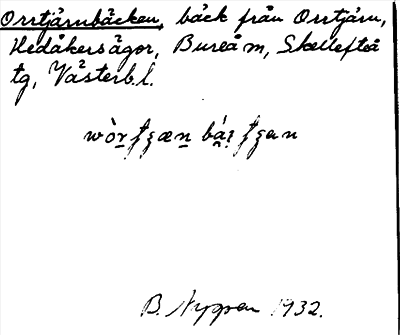 Orrtjärnbäcken, bäck från Orrtjärn,
Hedåkersägor, Bureå m, Skellefteå
tg, Västerb. l.
B. Nygren 1932.